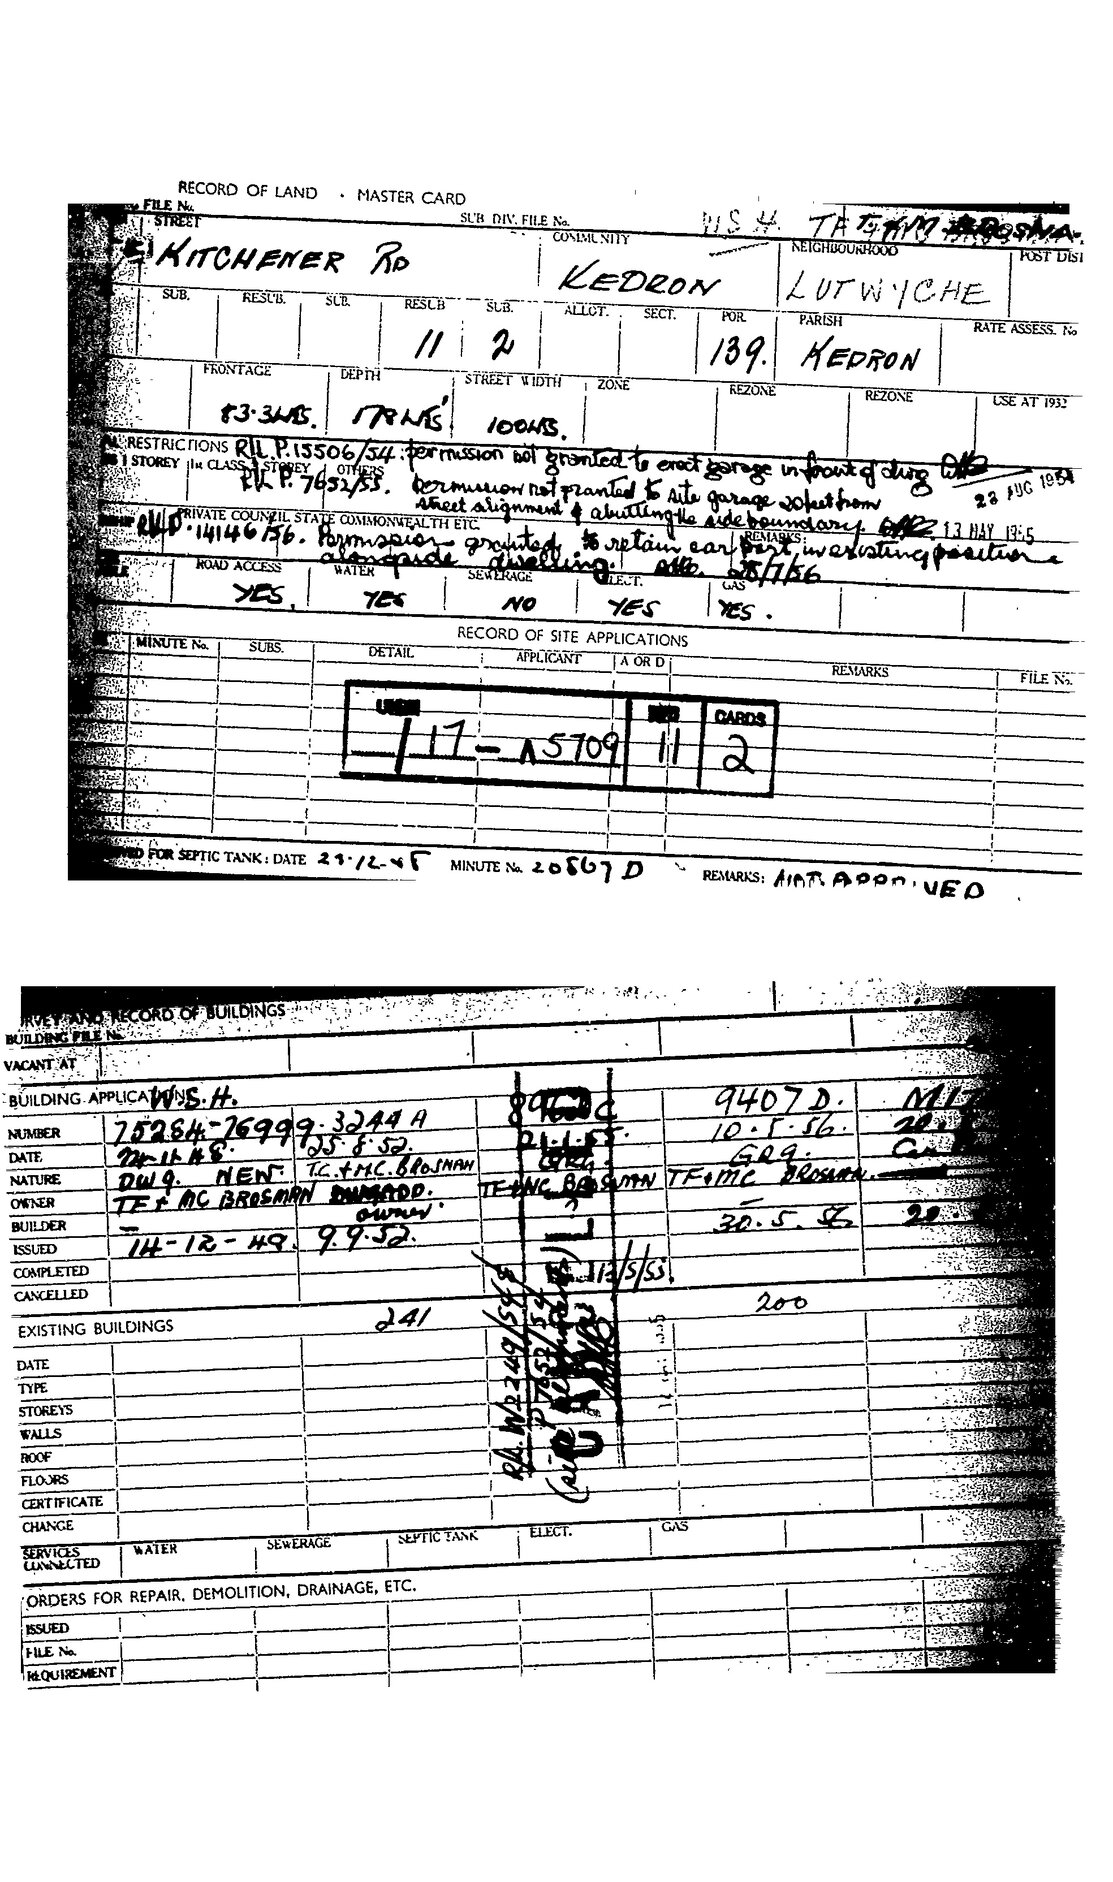 RECORD OF LAND - MASTER CARD
FILE No.
STREET SUB DIV. FILE No. COMMUNITY NEIGHBOURHOOD POST DIST
W.S.H.
KITCHENER RD KEDRON LUTWYCHE
SUB. RESUB. SUB. RESUB SUB. ALLOT. SECT. POR. PARISH RATE ASSESS. No
11 2 139. KEDRON
FRONTAGE DEPTH STREET WIDTH ZONE REZONE REZONE USE AT 1932
83.3 LKS. 178 LKS 100 LKS.
RESTRICTIONS R/L P. 15506/54. permission not granted to erect garage in front of dwg
1 STOREY 1st CLASS 2 STOREY OTHERS
23 AUG 1954
R/L P. 7652/55. permission not granted to site garage 20 feet from
street alignment & abutting the side boundary. 13 MAY 1955
PRIVATE COUNCIL STATE COMMONWEALTH ETC. REMARKS:
14146/56. Permission granted to retain car port, in existing position
alongside dwelling. 25/7/56
ROAD ACCESS WATER SEWERAGE ELECT. GAS
YES. YES NO YES YES.
RECORD OF SITE APPLICATIONS
MINUTE No. SUBS. DETAIL APPLICANT A OR D REMARKS FILE No.
CARDS
/17 - A5709 11 2
FOR SEPTIC TANK: DATE MINUTE No. 20867 D REMARKS: APPROVED
SURVEY AND RECORD OF BUILDINGS
BUILDING FILE No.
VACANT AT
BUILDING APPLICATIONS W.S.H.
NUMBER 75284-76999. 3244 A 9407 D.
DATE 25.8.52. 21.1.55. 10.5.56.
NATURE DWG. NEW. T.C. & M.C. BROSMAN GRG.
OWNER TF & MC BROSMAN TF & MC BROSMAN TF & MC BROSMAN.
BUILDER — owner. —
ISSUED 14-12-49. 9.9.52. 30.5.56
COMPLETED 13/5/55.
CANCELLED
EXISTING BUILDINGS 241 200
DATE
TYPE
STOREYS
WALLS
ROOF
FLOORS
CERTIFICATE
CHANGE
SERVICES CONNECTED WATER SEWERAGE SEPTIC TANK ELECT. GAS
ORDERS FOR REPAIR, DEMOLITION, DRAINAGE, ETC.
ISSUED
FILE No.
REQUIREMENT